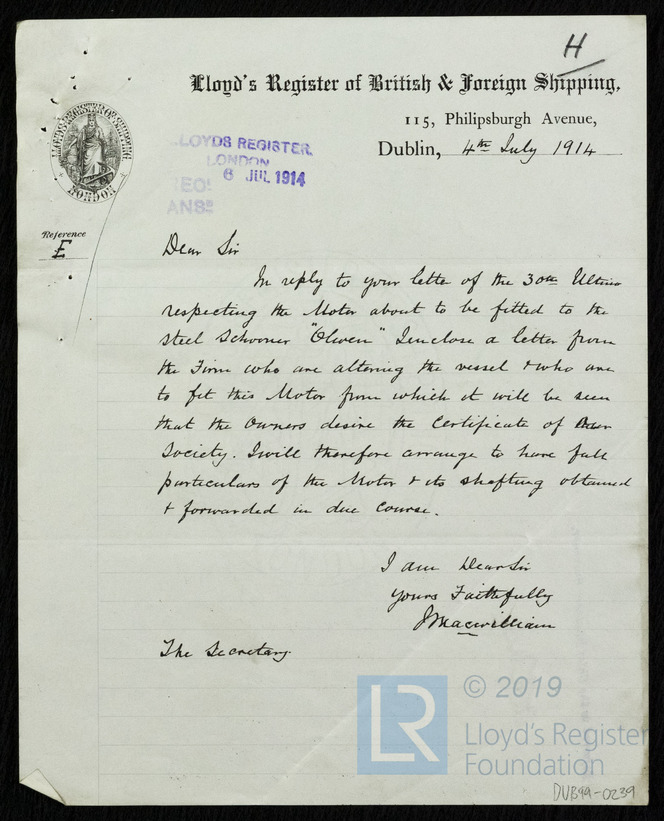 H
Lloyd's Register of British & Foreign Shipping,
115, Philipsburgh Avenue,
Dublin, 4th July 1914
LLOYD'S REGISTER OF SHIPPING
LONDON
LOYDS REGISTER.
LONDON
6 JUL 1914
ANSD
Reference
E
Dear Sir
In reply to your letter of the 30th Ultimo
respecting the Motor about to be fitted to the
steel Schooner "Olwen" I enclose a letter from
the Firm who are altering the vessel & who are
to fit this Motor from which it will be seen
that the Owners desire the Certificate of
Society. I will therefore arrange to have full
particulars of the Motor & its shafting obtained
& forwarded in due course.
I am Dear Sir
Yours Faithfully
J Macwilliam
The Secretary
LR
© 2019
Lloyd's Register
Foundation
DUB99-0239